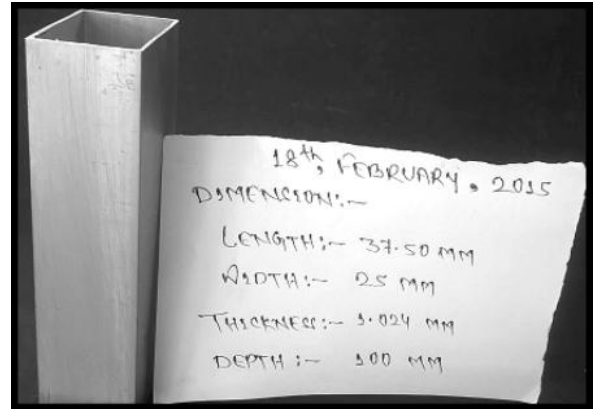 18th, FEBRUARY, 2015
DIMENSION:-
LENGTH:- 37.50 MM
WIDTH:- 25 MM
THICKNESS:- 1.024 MM
DEPTH:- 100 MM